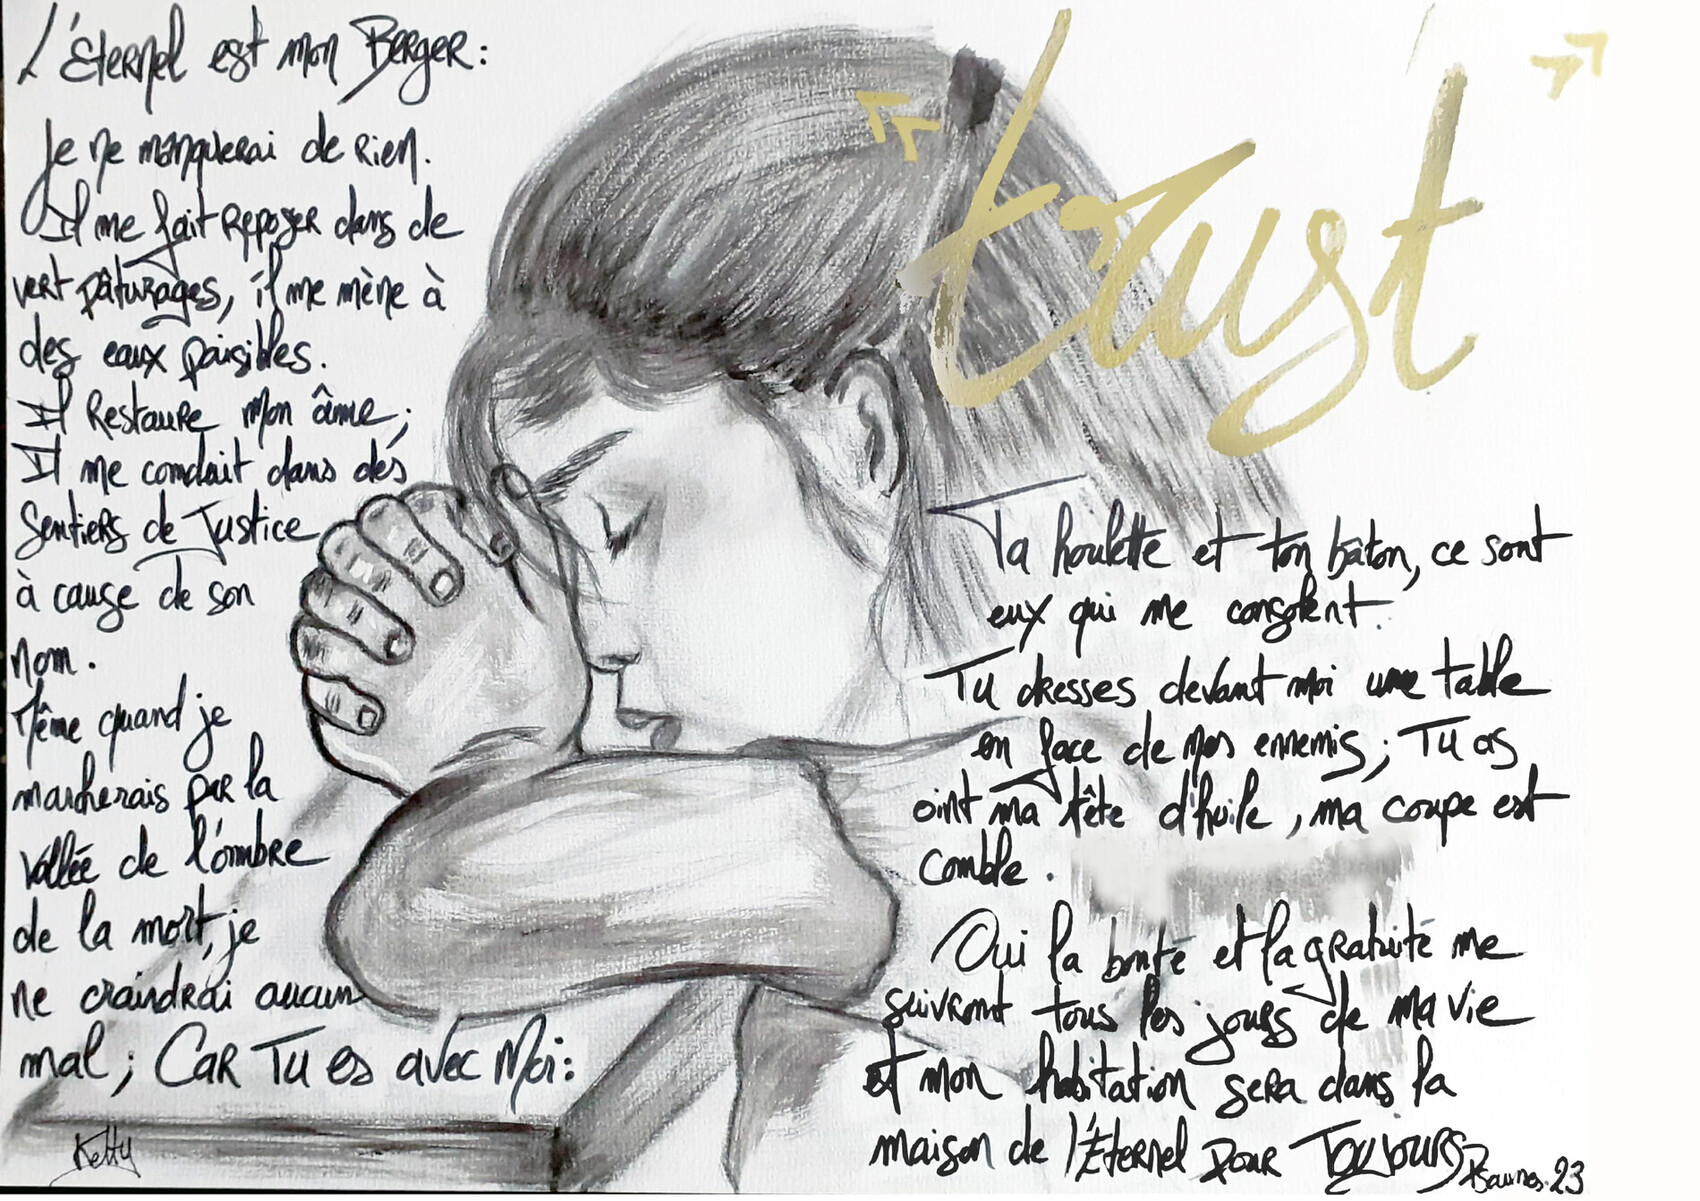 L'Éternel est mon Berger:
Je ne manquerai de rien.
Il me fait reposer dans de
vert pâturages, il me mène à
des eaux paisibles.
Il Restaure mon âme;
Il me conduit dans des
Sentiers de Justice
à cause de son
nom.
Même quand je
marcherais par la
vallée de l'ombre
de la mort, je
ne craindrai aucun
mal; Car Tu es avec Moi:
Kelly
"trust"
Ta houlette et ton bâton, ce sont
eux qui me consolent.
Tu dresses devant moi une table
en face de mes ennemis; Tu as
oint ma tête d'huile, ma coupe est
comble.
Oui la bonté et la gratuité me
suivront tous les jours de ma vie
et mon habitation sera dans la
maison de l'Éternel pour Toujours
Psaumes.23